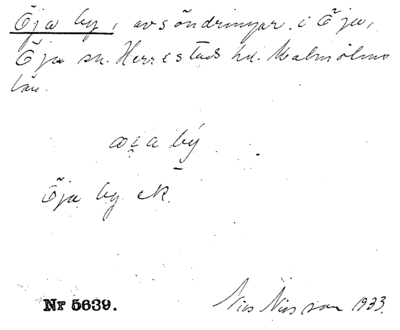 Öja by, avsöndringar i Öja,
Öja sn. Herrestads hd. Malmöhus
län.
by
Öja by ek.
Nr 5639.
Nils Nilsson 1933.